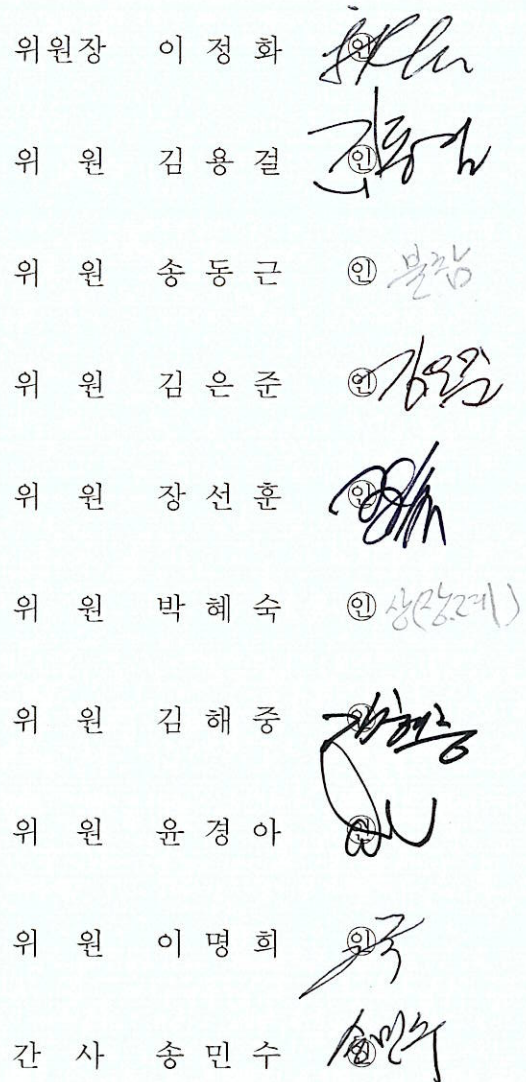 위원장 이 정 화 ㊞
위 원 김 용 걸 ㊞
위 원 송 동 근 ㊞ 불참
위 원 김 은 준 ㊞
위 원 장 선 훈 ㊞
위 원 박 혜 숙 ㊞ 상(장례)
위 원 김 해 중 ㊞
위 원 윤 경 아 ㊞
위 원 이 명 희 ㊞
간 사 송 민 수 ㊞ 송민수